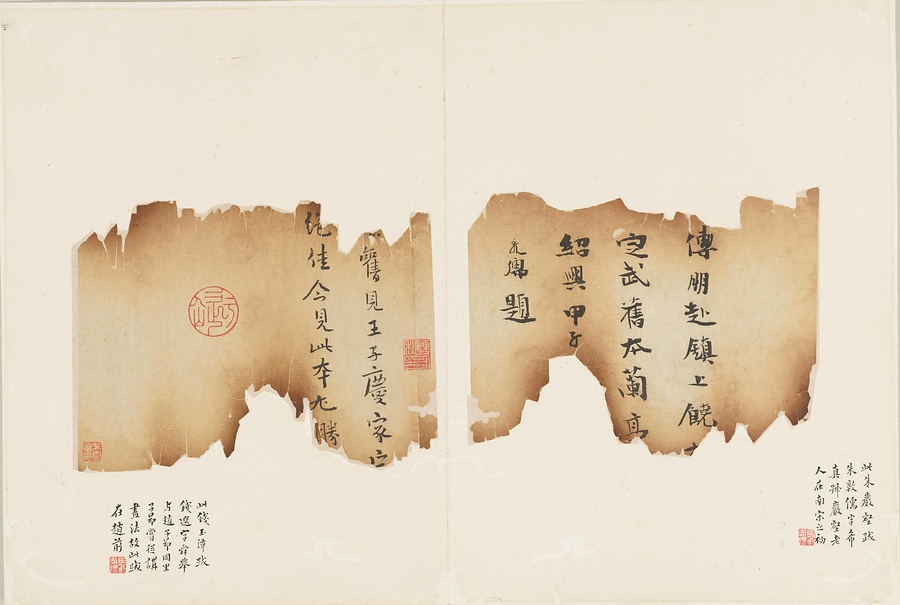 傅朋赴鎮上饒
定武舊本蘭亭
紹興甲子
題
此朱巖壑跋
朱敦儒字希
真號巖壑老
人在南宋之初
舊見王子慶家定
絕佳今見此本尤勝
此錢玉潭跋
錢選字舜舉
与趙子昂同里
子昂嘗從講
畫法故此跋
在趙前